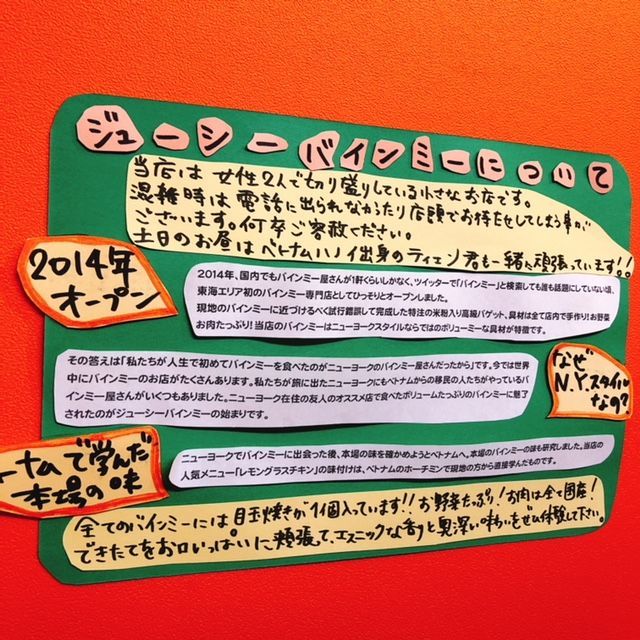 ジューシーバインミーについて
当店は女性2人で切り盛りしている小さなお店です。
混雑時は電話に出られなかったり店頭でお待たせしてしまう事が
ございます。何卒ご容赦ください。
土日のお昼はベトナムハノイ出身のティエン君も一緒に頑張っています!!
2014年
オープン
2014年、国内でもバインミー屋さんが1軒くらいしかなく、ツイッターで「バインミー」と検索しても誰も話題にしていない頃、
東海エリア初のバインミー専門店としてひっそりとオープンしました。
現地のバインミーに近づけるべく試行錯誤して完成した特注の米粉入り高級バゲット、具材は全て店内で手作り!お野菜
お肉たっぷり!当店のバインミーはニューヨークスタイルならではのボリューミーな具材が特徴です。
なぜ
N.Y.スタイル
なの?
その答えは「私たちが人生で初めてバインミーを食べたのがニューヨークのバインミー屋さんだったから」です。今では世界
中にバインミーのお店がたくさんあります。私たちが旅に出たニューヨークにもベトナムからの移民の人たちがやっているバ
インミー屋さんがいくつもありました。ニューヨーク在住の友人のオススメ店で食べたボリュームたっぷりのバインミーに魅了
されたのがジューシーバインミーの始まりです。
トナムで学んだ
本場の味
ニューヨークでバインミーに出会った後、本場の味を確かめようとベトナムへ。本場のバインミーの味も研究しました。当店の
人気メニュー「レモングラスチキン」の味付けは、ベトナムのホーチミンで現地の方から直接学んだものです。
全てのバインミーには目玉焼きが1個入っています!!お野菜たっぷり!お肉は全て国産!
できたてをお口いっぱいに頬張って、エスニックな香りと奥深い味わいをぜひ体験して下さい。